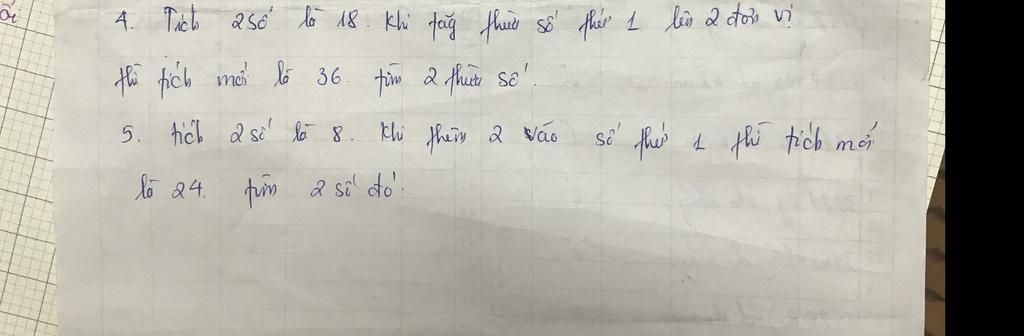 4. Tích 2 số là 18. Khi tăg thừa số thứ 1 lên 2 đơn vị
thì tích mới là 36. tìm 2 thừa số.
5. tích 2 số là 8. Khi thêm 2 vào số thứ 1 thì tích mới
là 24. tìm 2 số đó.